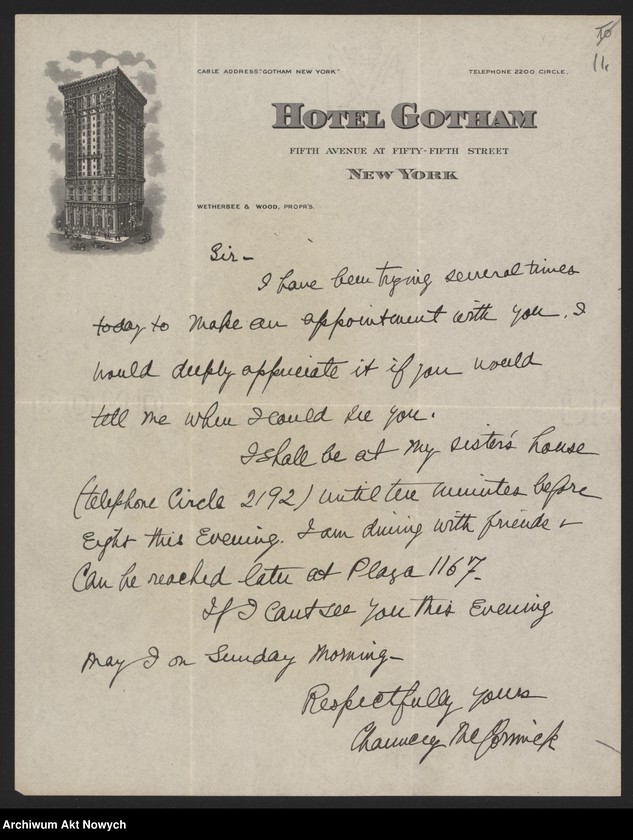 CABLE ADDRESS "GOTHAM NEW YORK"
TELEPHONE 2200 CIRCLE.
HOTEL GOTHAM
FIFTH AVENUE AT FIFTY-FIFTH STREET
NEW YORK
WETHERBEE & WOOD, PROPR'S.
Sir—
I have been trying several times
today to make an appointment with you. I
would deeply appreciate it if you would
tell me when I could see you.
I shall be at my sister's house
(telephone Circle 2192) until ten minutes before
Eight this Evening. I am dining with friends +
Can be reached later at Plaza 1167—
If I can't see you this Evening
may I on Sunday Morning—
Respectfully yours
Chauncey McCormick
Archiwum Akt Nowych